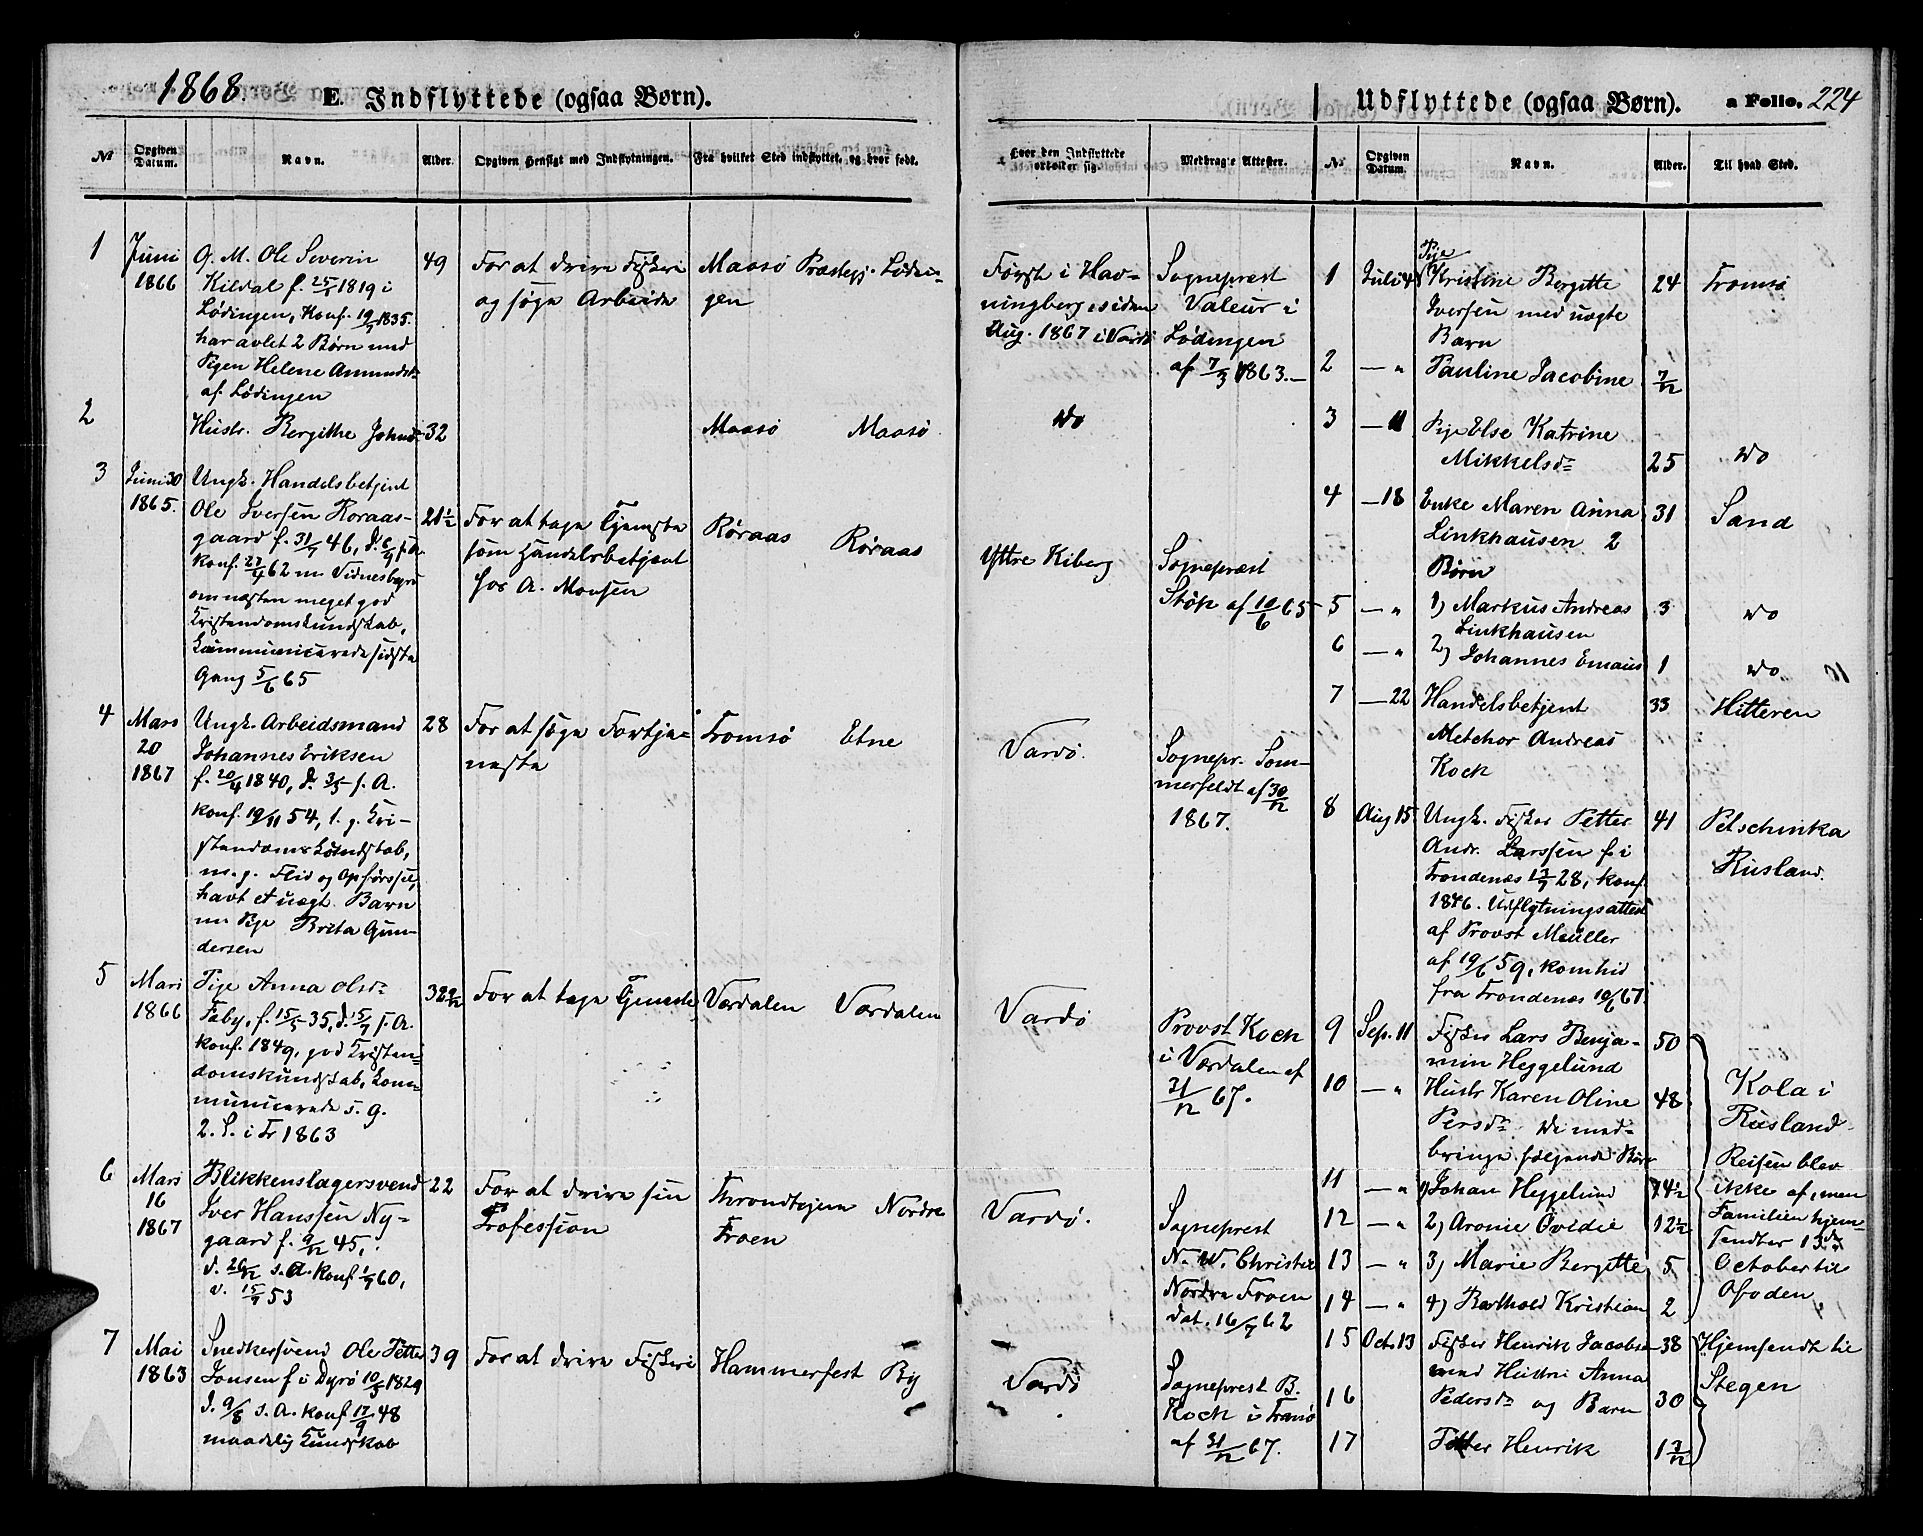 1868.
E. Indflyttede (ogsaa Børn).
№
Opgiven Datum.
Navn.
Alder.
Opgiven Hensigt med Indflytningen.
Fra hvilket Sted indflyttet, og hvor født.
1
Juni
1866
G. M. Ole Severin
Kildal f. 25/1 1819 i
Lødingen, Konf. 19/7 1835.
har avlet 2 Børn med
Pigen Helene Amundsdr
af Lødingen
49
For at drive Fiskeri
og søge Arbeide
Maasø Præstegj. Lødin-
gen
2
Hustr. Bergithe Johnsd.
32
Maasø Maasø
3
Juni 30
1865.
Ungk. Handelsbetjent
Ole Iversen Koraas-
gaard f. 31/7 46, d. 6/9 s. A.
konf. 27/4 62 m Vidnesbyrd
om næsten meget god
Kristendomskundskab,
kommunicerede sidste
Gang 5/6 65
21½
For at tage Tjeneste
som Handelsbetjent
hos A. Monsen
Røraas Røraas
4
Mars
20
1867
Ungk. Arbeidsmand
Johannes Eriksen
f. 20/4 1840, d. 3/5 s. A.
konf. 19/11 54, t. g. Kri-
stendomskundskab,
m. g. Flid og Opførsel,
havt et uægt. Barn
m Pige Brita Gun-
dersen
28
For at søge Fortje-
neste
Tromsø Etne
5
Mari
1866
Pige Anna Olsdr
Faby, f. 15/5 35, d. 15/7 s. A.
konf. 1849, god Kristen-
domskundskab, kom-
municerede s. G.
2. S. i Tr 1863
32 9/12
For at tage Tjeneste
Værdalen Værdalen
6
Mars
16
1867
Blikkenslagersvend
Iver Hanssen Ny-
gaard f. 9/12 45,
d. 26/12 s. A. konf 1/7 60,
v. 15/9 53
22
For at drive sin
Profession
Throndhjem Nordre
Froen
7
Mai
1863
Snedkersvend Ole Petter
Jonsen f i Dyrø 10/3 1829
d. 9/8 s. A. konf 17/9 48
maadelig Kundskab
39
For at drive Fiskeri
Hammerfest By
Udflyttede (ogsaa Børn).
a Folio. 224
Hvor den Indflyttede opholder sig.
Medbragte Attester.
№
Opgiven Datum.
Navn.
Alder.
Til hvad Sted.
Først i Hav-
ningberg, siden
Aug. 1867 i Vardø
Sogneprest
Valeur i
Lødingen
af 7/3 1863.—
Do
Yttre Kiberg
Sogneprest
Støp af 10/6 65
Vardø.
Sognepr. Som-
merfeldt af 30/12
1867.
Vardø
Provst Koch
i Værdalen af
31/12 67.
Vardø.
Sogneprest
N. W. Christie
Nordre Froen
dat. 16/7 62
Vardø
Sogneprest B.
Koch i Tranø
af 31/12 67.
1
Juli 4
Pige
Kristine Bergitte
Iversen med uægte
Barn
24
Tromsø
2
— „
Pauline Jacobine
7/12
3
— 11
Pige Else Katrine
Mikkelsdr
25
Do
4
— 18
Enke Maren Anna
Linkhausen 2
Børn
31
Sand
5
— „
1) Markus Andreas
Linkhausen
3
Do
6
— „
2) Johannes Emaus
1
Do
7
— 22
Handelsbetjent
Melchor Andreas
Kock
33
Hitteren
8
Aug 15
Ungk. Fisker Petter
Andr. Larssen f. i
Trondenæs 17/7 28, konf.
1846. Udflytningsattest
af Provst Müller
af 19/6 59, kom hid
fra Trondenæs 10/6 67.
41
Petschinka
Rusland.
9
Sep. 11
Fisker Lars Benja-
min Heggelund
50
10
— „
Hustr Karen Oline
Persdr. De med-
bringe følgende Børn
48
Kola i
Rusland.
Reisen blev
ikke af, men
Familien hjem-
sendtes 13de
October til
Ofoden.
11
— „
1) Johan Heggelund
14½
12
— „
2) Aronie Ovidie
12½
13
— „
3) Marie Bergitte
5
14
— „
4) Barthold Kristian
2
15
Oct. 13
Fisker Henrik Jacobsen
med Hustru Anna
38
Hjemsendt til
Stegen
16
Pedersdr og Barn
30
17
Petter Henrik
1 7/12